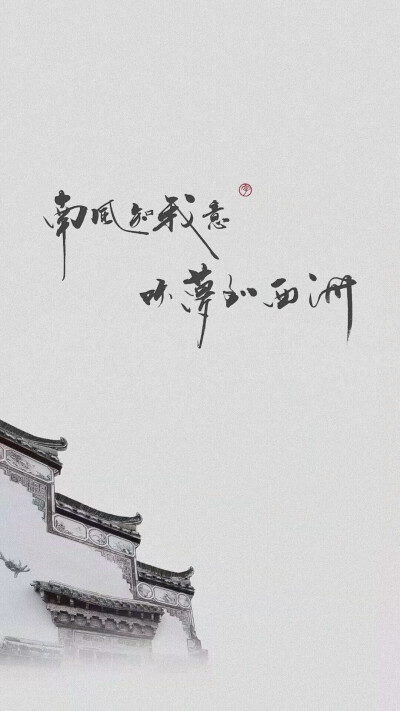 南风知我意
吹夢到西洲